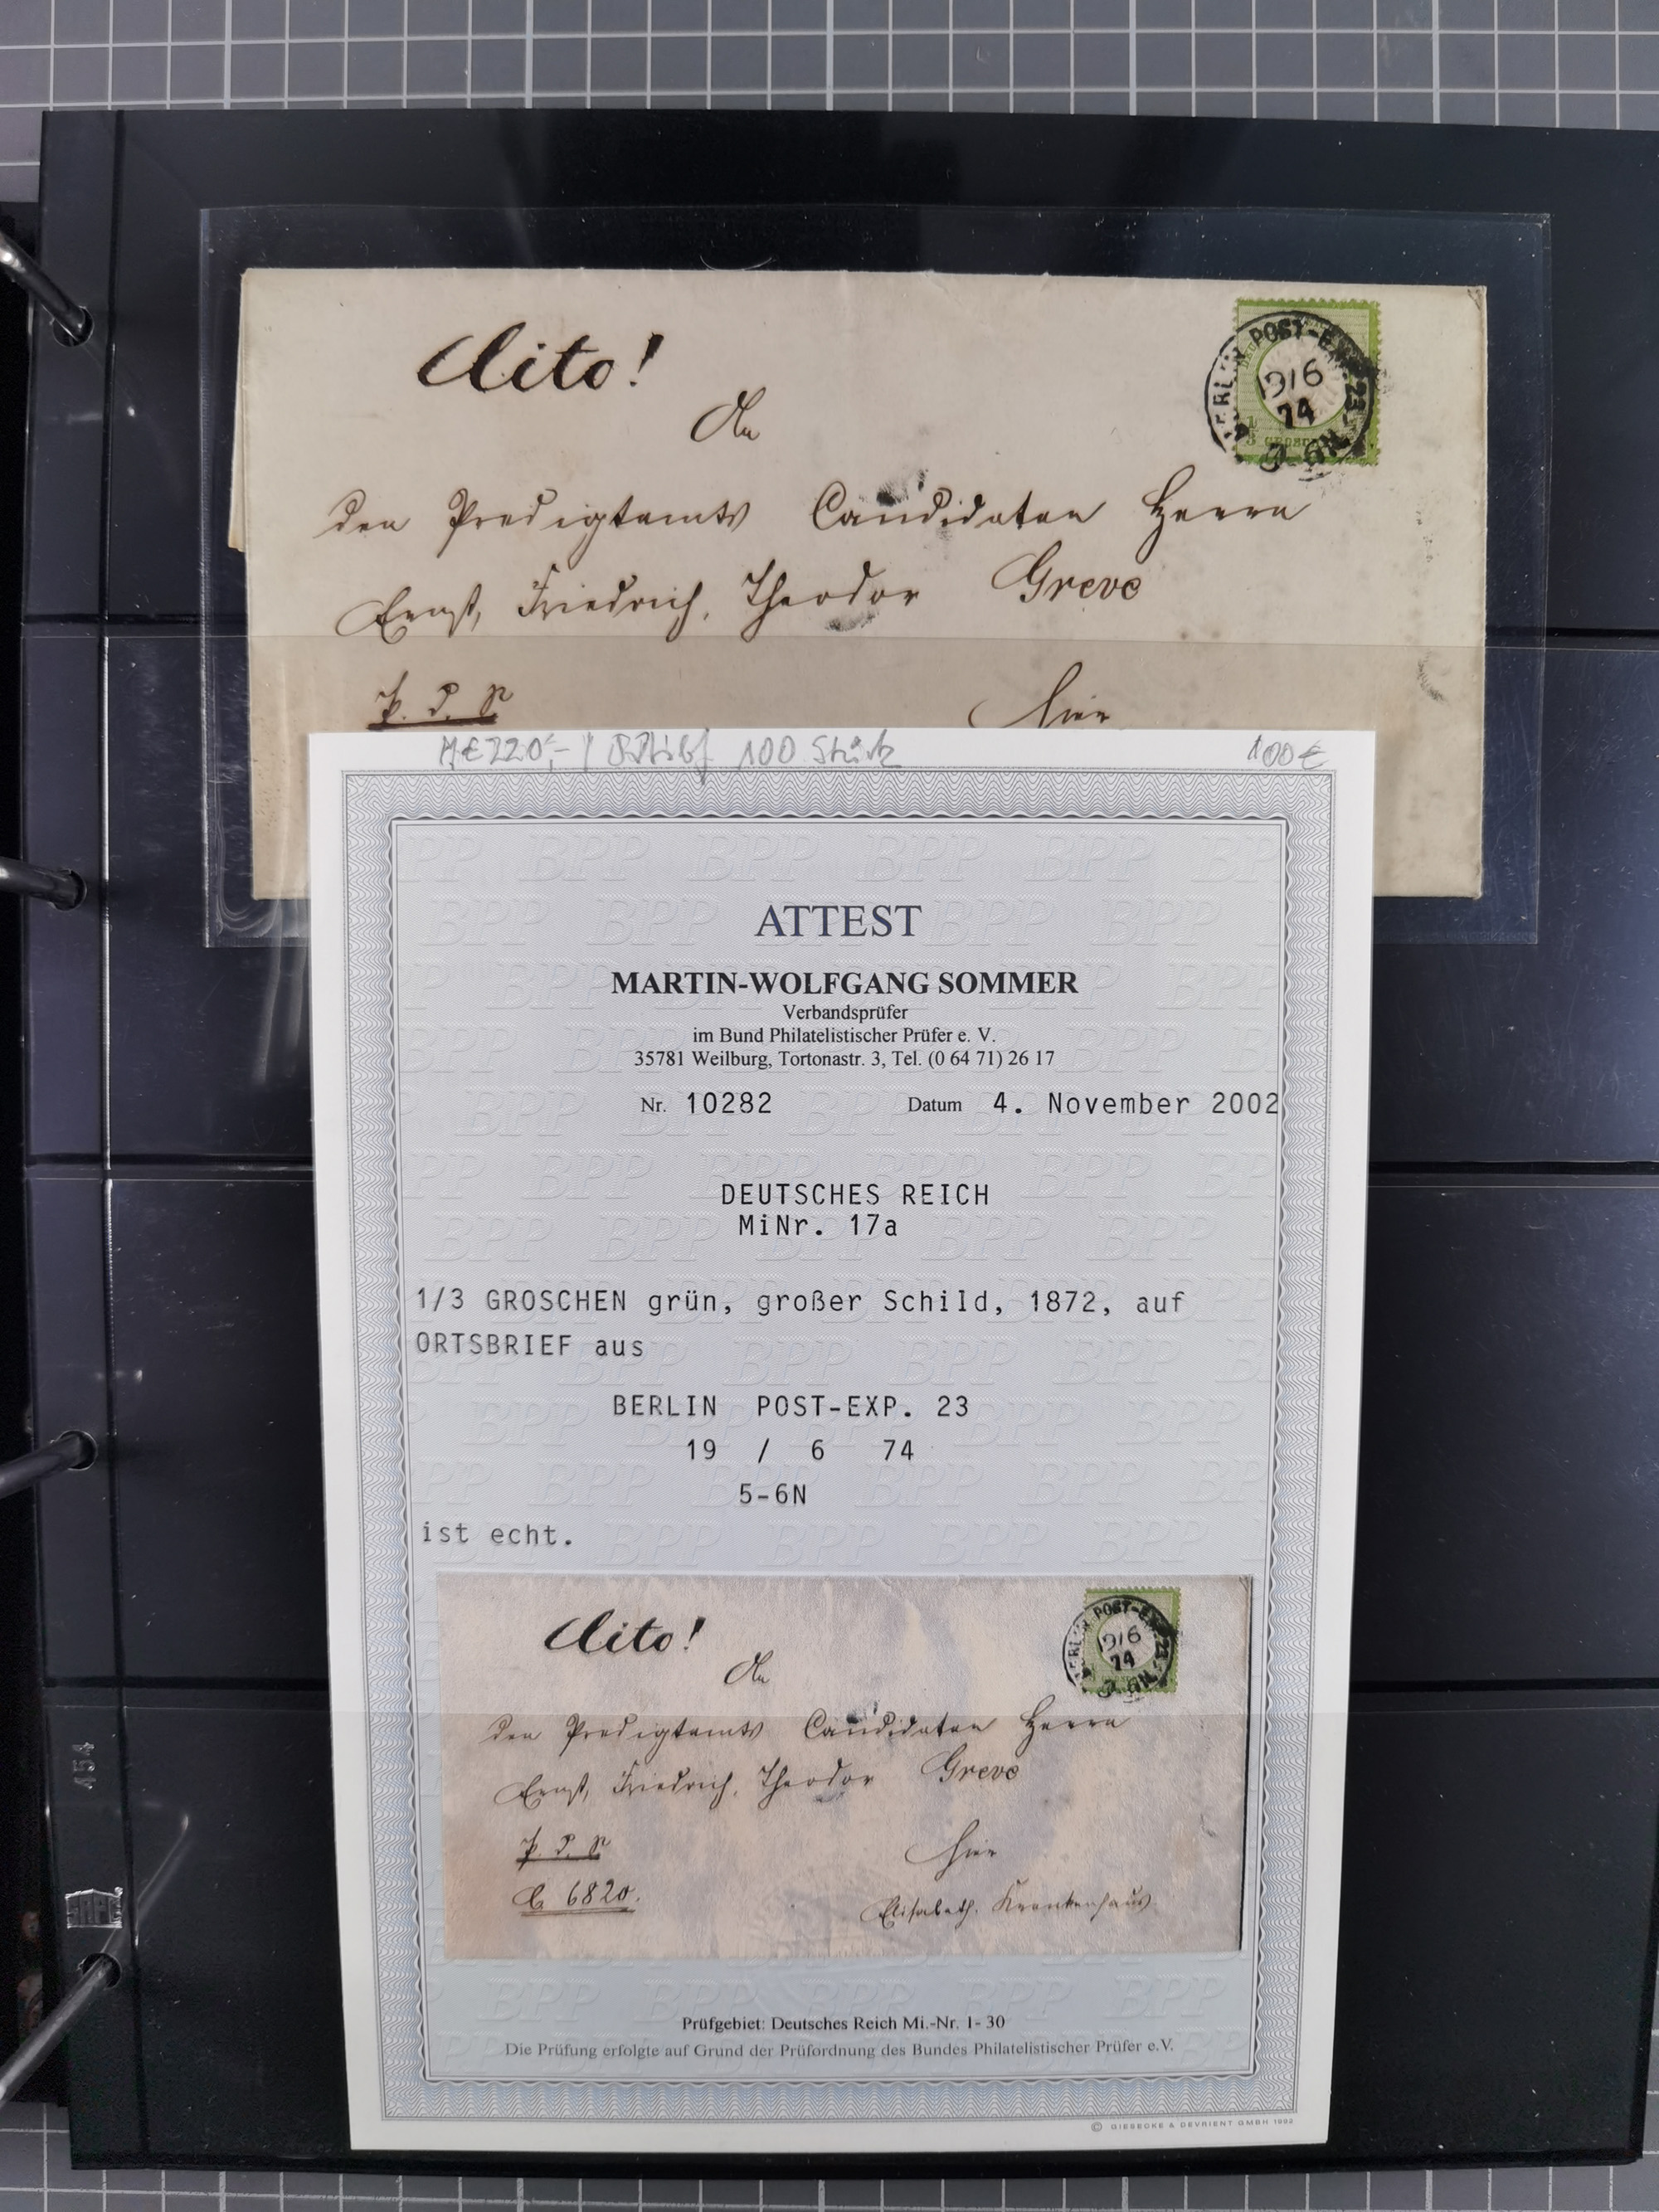 Cito!
An
den Predigtamts Candidaten Herrn
Ernst, Friedrich, Theodor Greve
hier
BERLIN POST-EX. 23
19/6
74
6N
GROSCHEN
100 Stück
100€
ATTEST
MARTIN-WOLFGANG SOMMER
Verbandsprüfer
im Bund Philatelistischer Prüfer e. V.
35781 Weilburg, Tortonastr. 3, Tel. (0 64 71) 26 17
Nr. 10282 Datum 4. November 2002
DEUTSCHES REICH
MiNr. 17a
1/3 GROSCHEN grün, großer Schild, 1872, auf
ORTSBRIEF aus
BERLIN POST-EXP. 23
19 / 6 74
5-6N
ist echt.
Cito!
An
den Predigtamts Candidaten Herrn
Ernst, Friedrich, Theodor Greve
hier
C. 6820.
Elisabeth. Krankenhaus.
Prüfgebiet: Deutsches Reich Mi.-Nr. 1- 30
Die Prüfung erfolgte auf Grund der Prüfordnung des Bundes Philatelistischer Prüfer e.V.
© GIESECKE & DEVRIENT GMBH 1992
454
SAFE